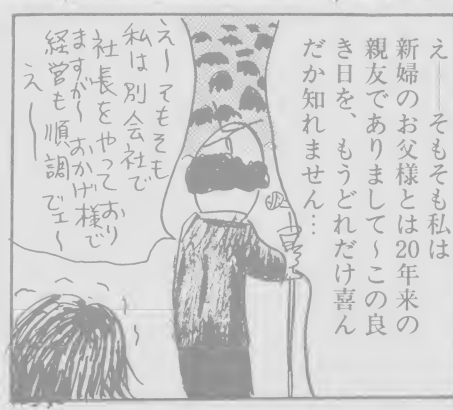 え――そもそも私は
新婦のお父様とは20年来の
親友でありまして～この良
き日を、もうどれだけ喜ん
だか知れません…
えーてもそも
私は別会社で
社長をやっており
ますが～おかげ様で
経営も順調でェ～
え――